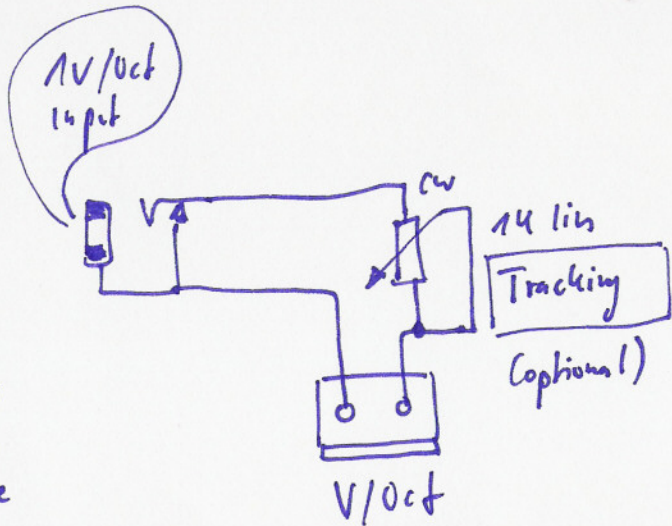 1V/Oct
Input
cw
lin
Tracking
(optional)
V/Oct